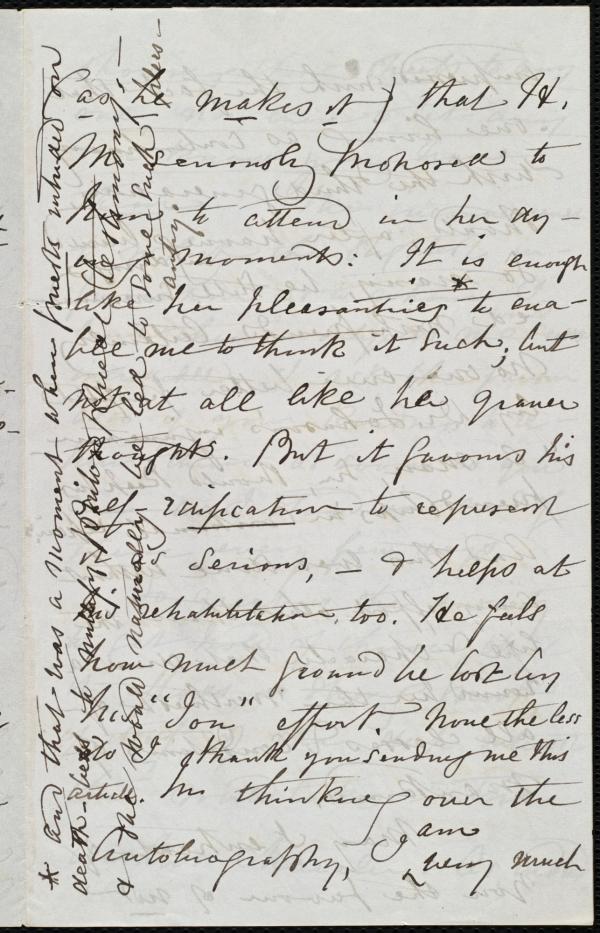 as he makes it) that H.
M. seriously proposed to
him to attend in her dy-
ing moments: It is enough
like her pleasantries * to ena-
ble me to think it such; but
not at all like her graver
thoughts. But it favours his
self-edification to represent
it serious, – & helps at
his rehabilitation, too. He feels
how much ground he lost by
his "Ion" effort. None the less
do I thank you sending me this
article. In thinking over the
Autobiography, I am
very much
* And that was a moment when priests intruded on
death-beds to
& she would naturally be led to some such